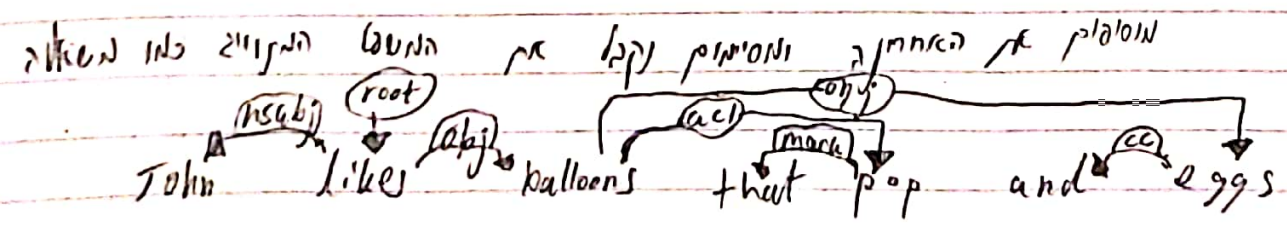 מוסיפים את האחרונה ומסיימים נקבל את המשפט המתויג כמו משאלה
nsubj root obj acl mark conj cc
John likes balloons that pop and eggs